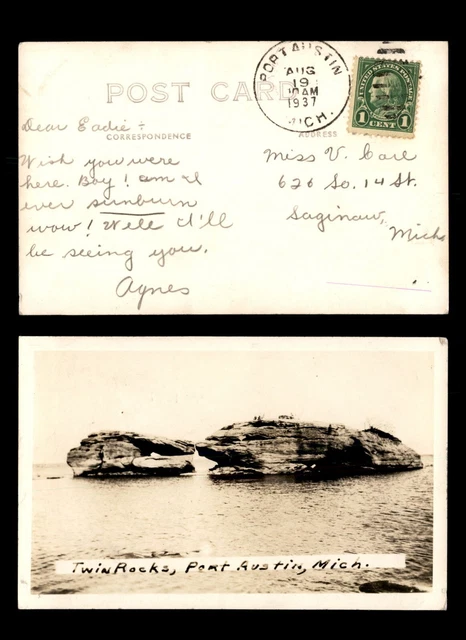 POST CARD
PORT AUSTIN
AUG
19
10 AM
1937
MICH.
UNITED STATES POSTAGE
1 CENT 1
CORRESPONDENCE
ADDRESS
Dear Eadie :
Wish you were
here. Boy! am I
ever sunburn
wow! Well I'll
be seeing you.
Agnes
Miss V. Carl
626 So. 14 St.
Saginaw,
Mich
Twin Rocks, Port Austin, Mich.